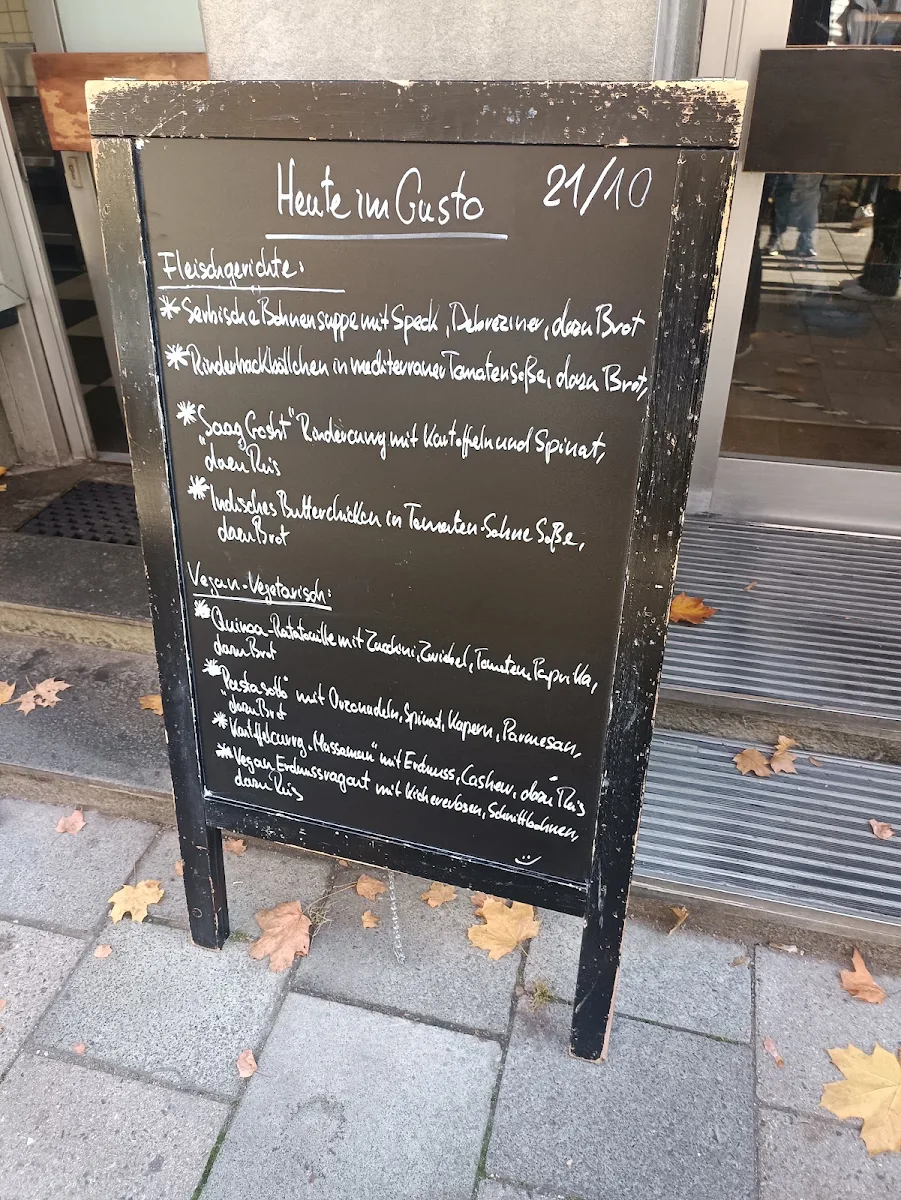 Heute im Gusto 21/10
Fleischgerichte:
* Serbische Bohnensuppe mit Speck, Debreziner, dazu Brot
* Rinderhackbällchen in mediterraner Tomatensoße, dazu Brot,
* "Saag Gosht" Rindercurry mit Kartoffeln und Spinat,
dazu Reis
* Indisches Butterchicken in Tomaten-Sahne Soße,
dazu Brot
Vegan-Vegetarisch:
* Quinoa-Ratatouille mit Zucchini, Zwiebel, Tomaten, Paprika,
dazu Brot
* "Pastasotto" mit Orzonudeln, Spinat, Kapern, Parmesan,
dazu Brot
* Kartoffelcurry "Massaman" mit Erdnuss, Cashew, dazu Reis
* Vegan Erdnussragout mit Kichererbsen, Schnittbohnen,
dazu Reis